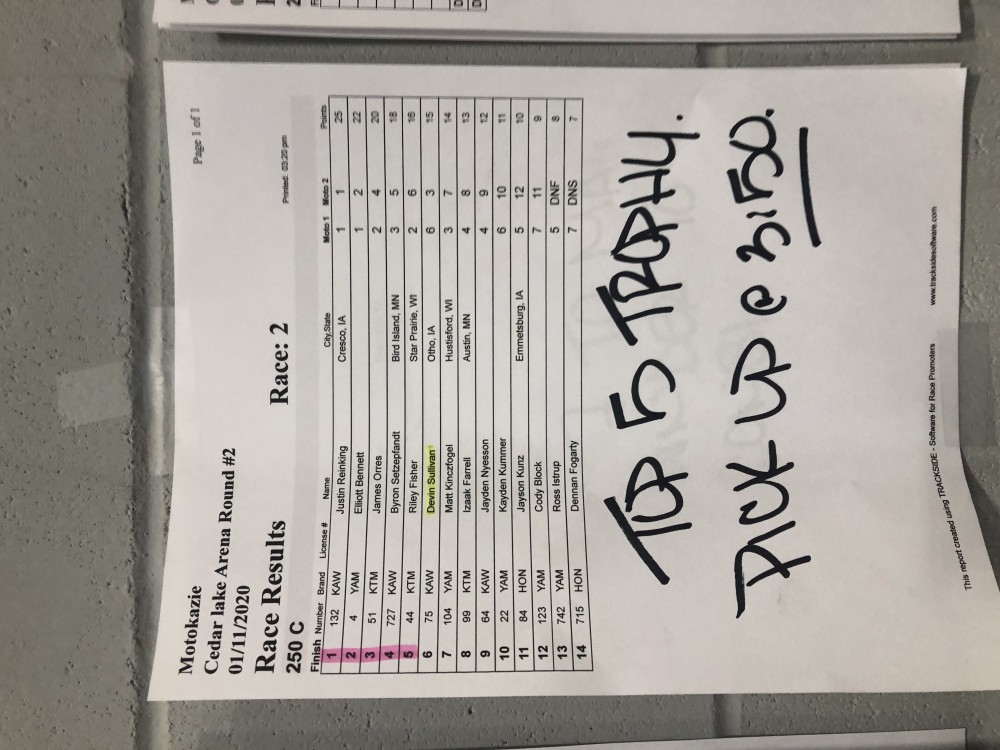 Motokazie
Page 1 of 1
Cedar lake Arena Round #2
01/11/2020
Race Results Race: 2
250 C Printed: 03:20 pm
Finish Number Brand License # Name City,State Moto 1 Moto 2 Points
1 132 KAW Justin Reinking Cresco, IA 1 1 25
2 4 YAM Elliott Bennett 1 2 22
3 51 KTM James Orres 2 4 20
4 727 KAW Byron Setzepfandt Bird Island, MN 3 5 18
5 44 KTM Riley Fisher Star Prairie, WI 2 6 16
6 75 KAW Devin Sullivan Otho, IA 6 3 15
7 104 YAM Matt Kinczfogel Hustisford, WI 3 7 14
8 99 KTM Izaak Farrell Austin, MN 4 8 13
9 64 KAW Jayden Nyesson 4 9 12
10 22 YAM Kayden Kummer 6 10 11
11 84 HON Jayson Kunz Emmetsburg, IA 5 12 10
12 123 YAM Cody Block 7 11 9
13 742 YAM Ross Istrup 5 DNF 8
14 715 HON Dennan Fogarty 7 DNS 7
TOP 5 TROPHY.
PICK UP @ 3:50.
This report created using TRACKSIDE - Software for Race Promoters www.tracksidesoftware.com